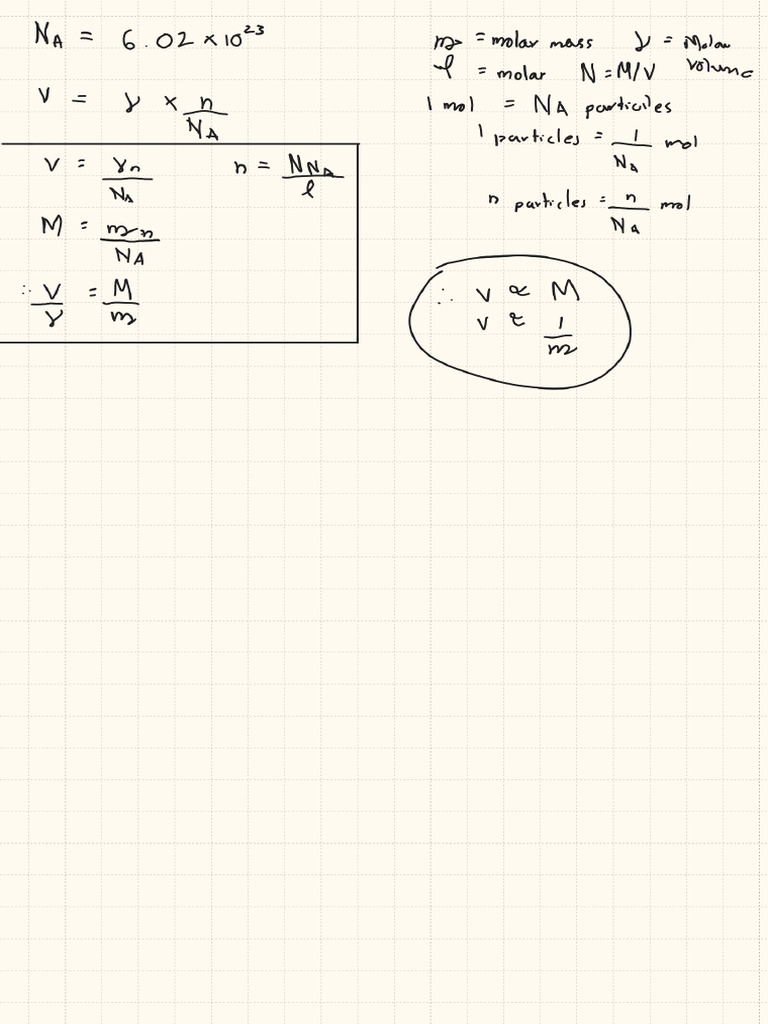 N_A = 6.02 × 10^23
V = γ × n/N_A
V = γn/N_A
n = N N_A/ℓ
M = mn/N_A
∴ V/γ = M/m
m = molar mass γ = Molar volume
ℓ = molar N = M/V
1 mol = N_A particles
1 particles = 1/N_A mol
n particles = n/N_A mol
∴ V ∝ M
V ∝ 1/m